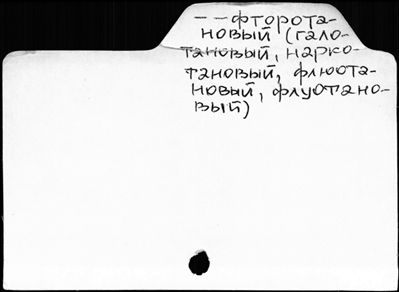 --фторота-
новый (гало-
тановый, нарко-
тановый, флюота-
новый, флуотано-
вый)